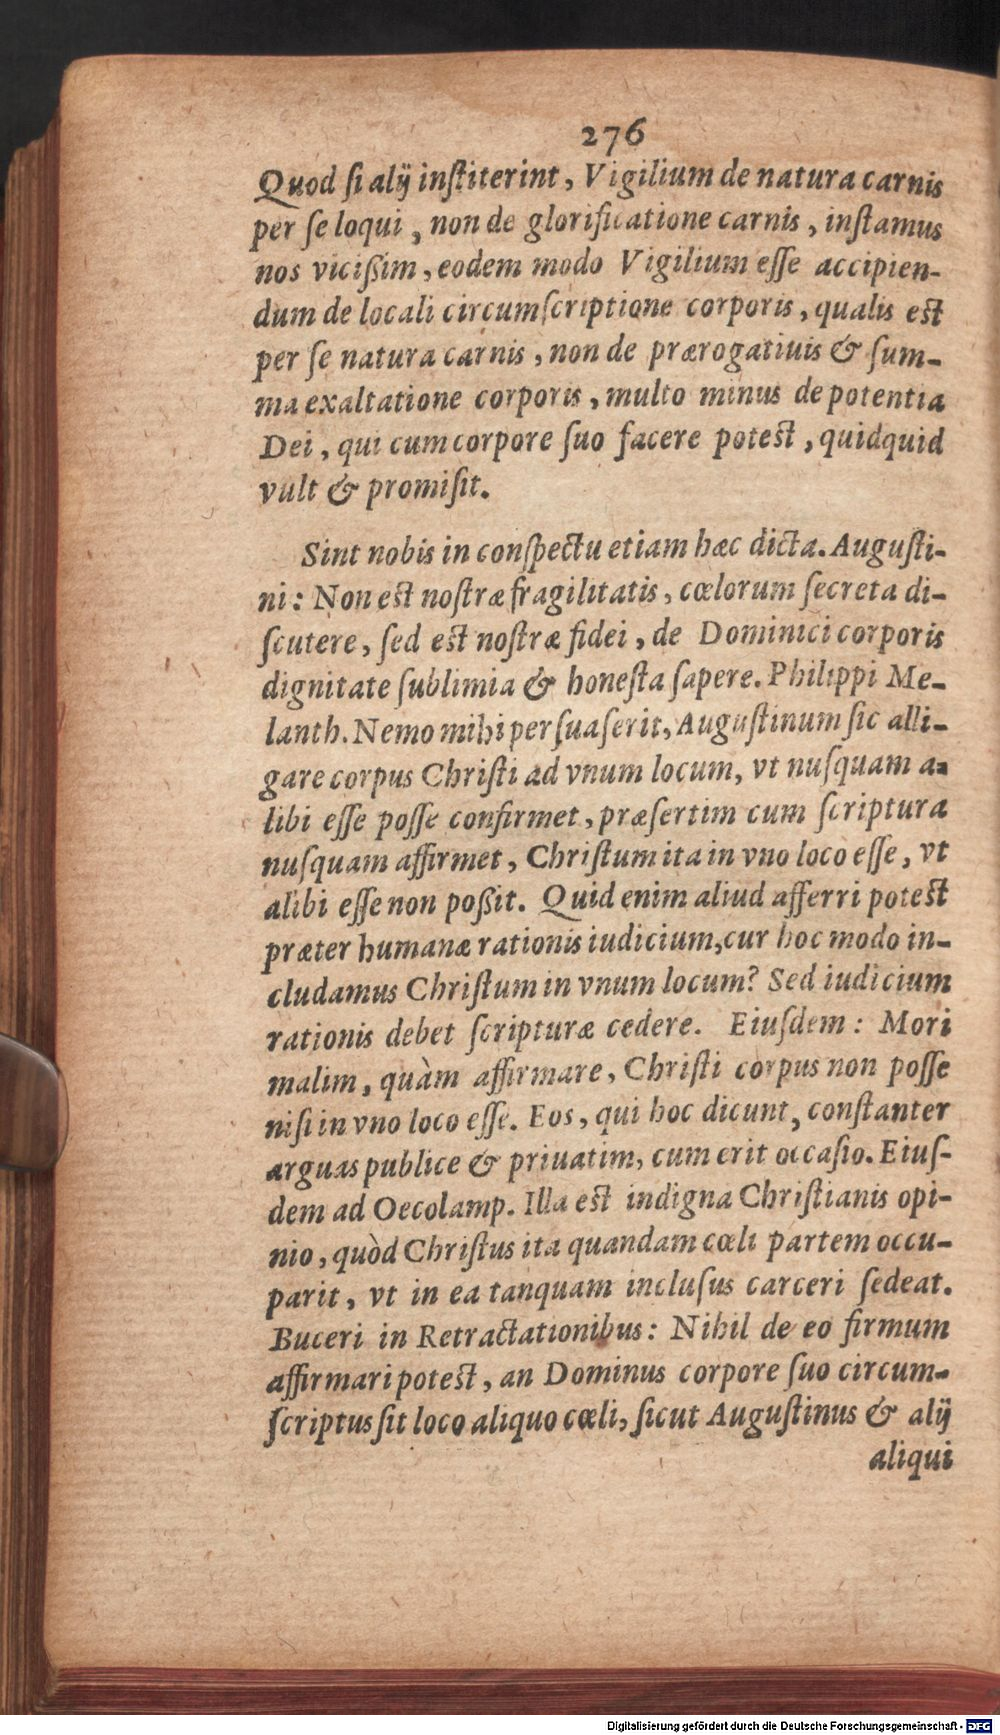 276
Quod ſi alij inſtiterint, Vigilium de natura carnis
per ſe loqui, non de glorificatione carnis, inſtamus
nos vicißim, eodem modo Vigilium eſſe accipien-
dum de locali circumſcriptione corporis, qualis eſt
per ſe natura carnis, non de prærogatiuis & ſum-
ma exaltatione corporis, multo minus de potentia
Dei, qui cum corpore ſuo facere poteſt, quidquid
vult & promiſit.
Sint nobis in conſpectu etiam hæc dicta. Auguſti-
ni: Non eſt noſtræ fragilitatis, cœlorum ſecreta di-
ſcutere, ſed eſt noſtræ fidei, de Dominici corporis
dignitate ſublimia & honeſta ſapere. Philippi Me-
lanth. Nemo mihi perſuaſerit, Auguſtinum ſic alli-
gare corpus Chriſti ad vnum locum, vt nuſquam a-
libi eſſe poſſe confirmet, præſertim cum ſcriptura
nuſquam affirmet, Chriſtum ita in vno loco eſſe, vt
alibi eſſe non poßit. Quid enim aliud afferri poteſt
præter humanæ rationis iudicium, cur hoc modo in-
cludamus Chriſtum in vnum locum? Sed iudicium
rationis debet ſcripturæ cedere. Eiuſdem: Mori
malim, quàm affirmare, Chriſti corpus non poſſe
niſi in vno loco eſſe. Eos, qui hoc dicunt, conſtanter
arguas publice & priuatim, cum erit occaſio. Eiuſ-
dem ad Oecolamp. Illa eſt indigna Chriſtianis opi-
nio, quòd Chriſtus ita quandam cœli partem occu-
parit, vt in ea tanquam incluſus carceri ſedeat.
Buceri in Retractationibus: Nihil de eo firmum
affirmari poteſt, an Dominus corpore ſuo circum-
ſcriptus ſit loco aliquo cœli, ſicut Auguſtinus & alij
aliqui
Digitalisierung gefördert durch die Deutsche Forschungsgemeinschaft - DFG